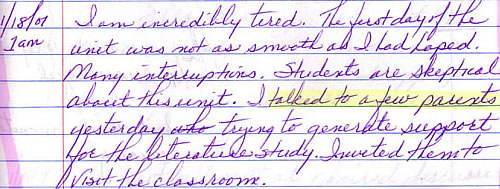 1/18/01 I am incredibly tired. The first day of the
1am unit was not as smooth as I had hoped.
Many interruptions. Students are skeptical
about this unit. I talked to a few parents
yesterday who trying to generate support
for the literature study. Invited them to
visit the classroom.